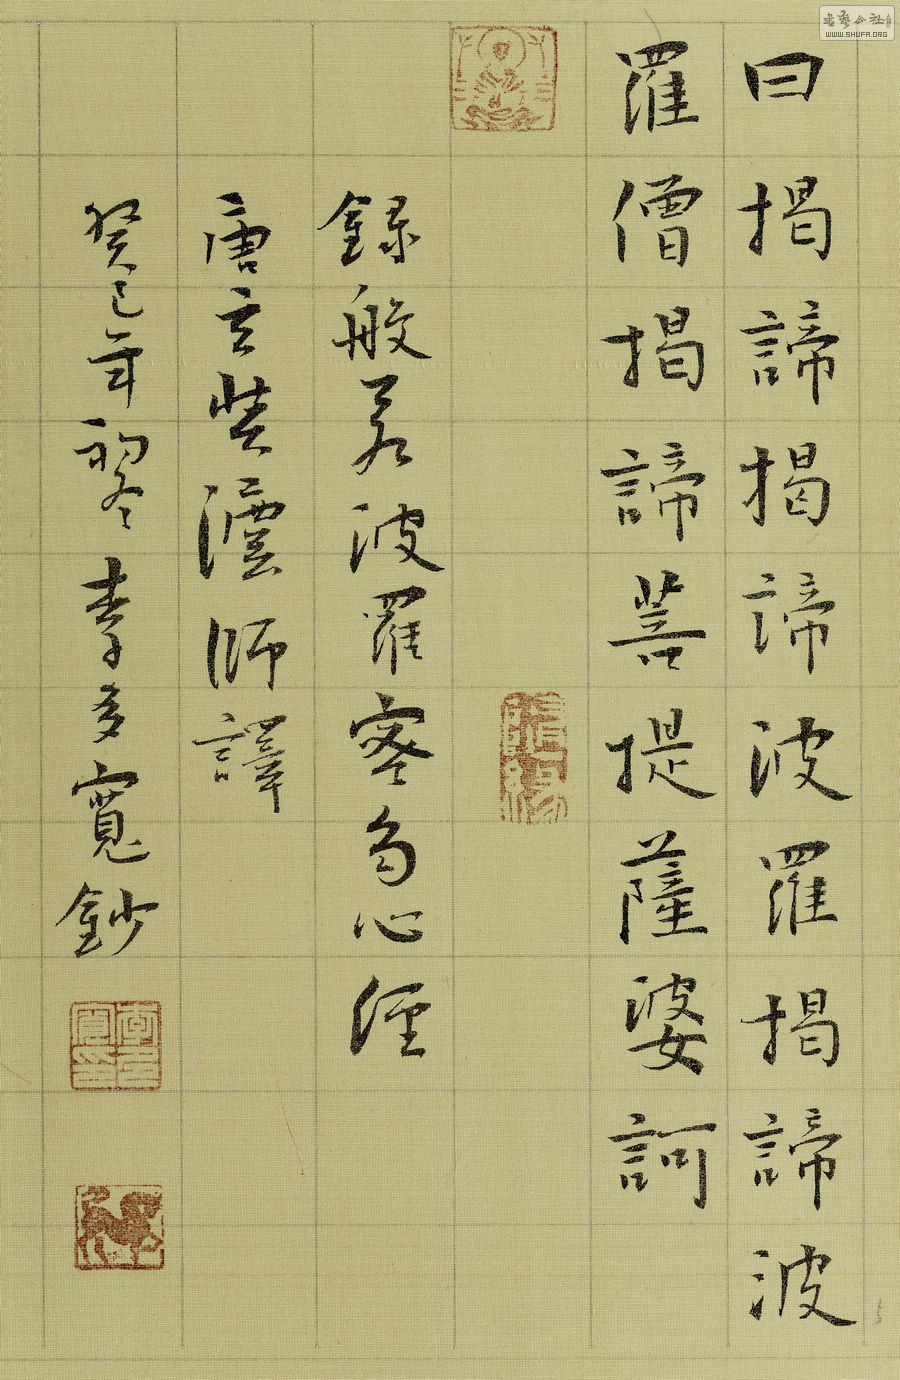 曰揭諦揭諦波羅揭諦波
羅僧揭諦菩提薩婆訶
錄般若波羅密多心經
唐玄奘灋師譯
癸巳年初冬李多寬鈔
書藝公社
WWW.SHUFA.ORG